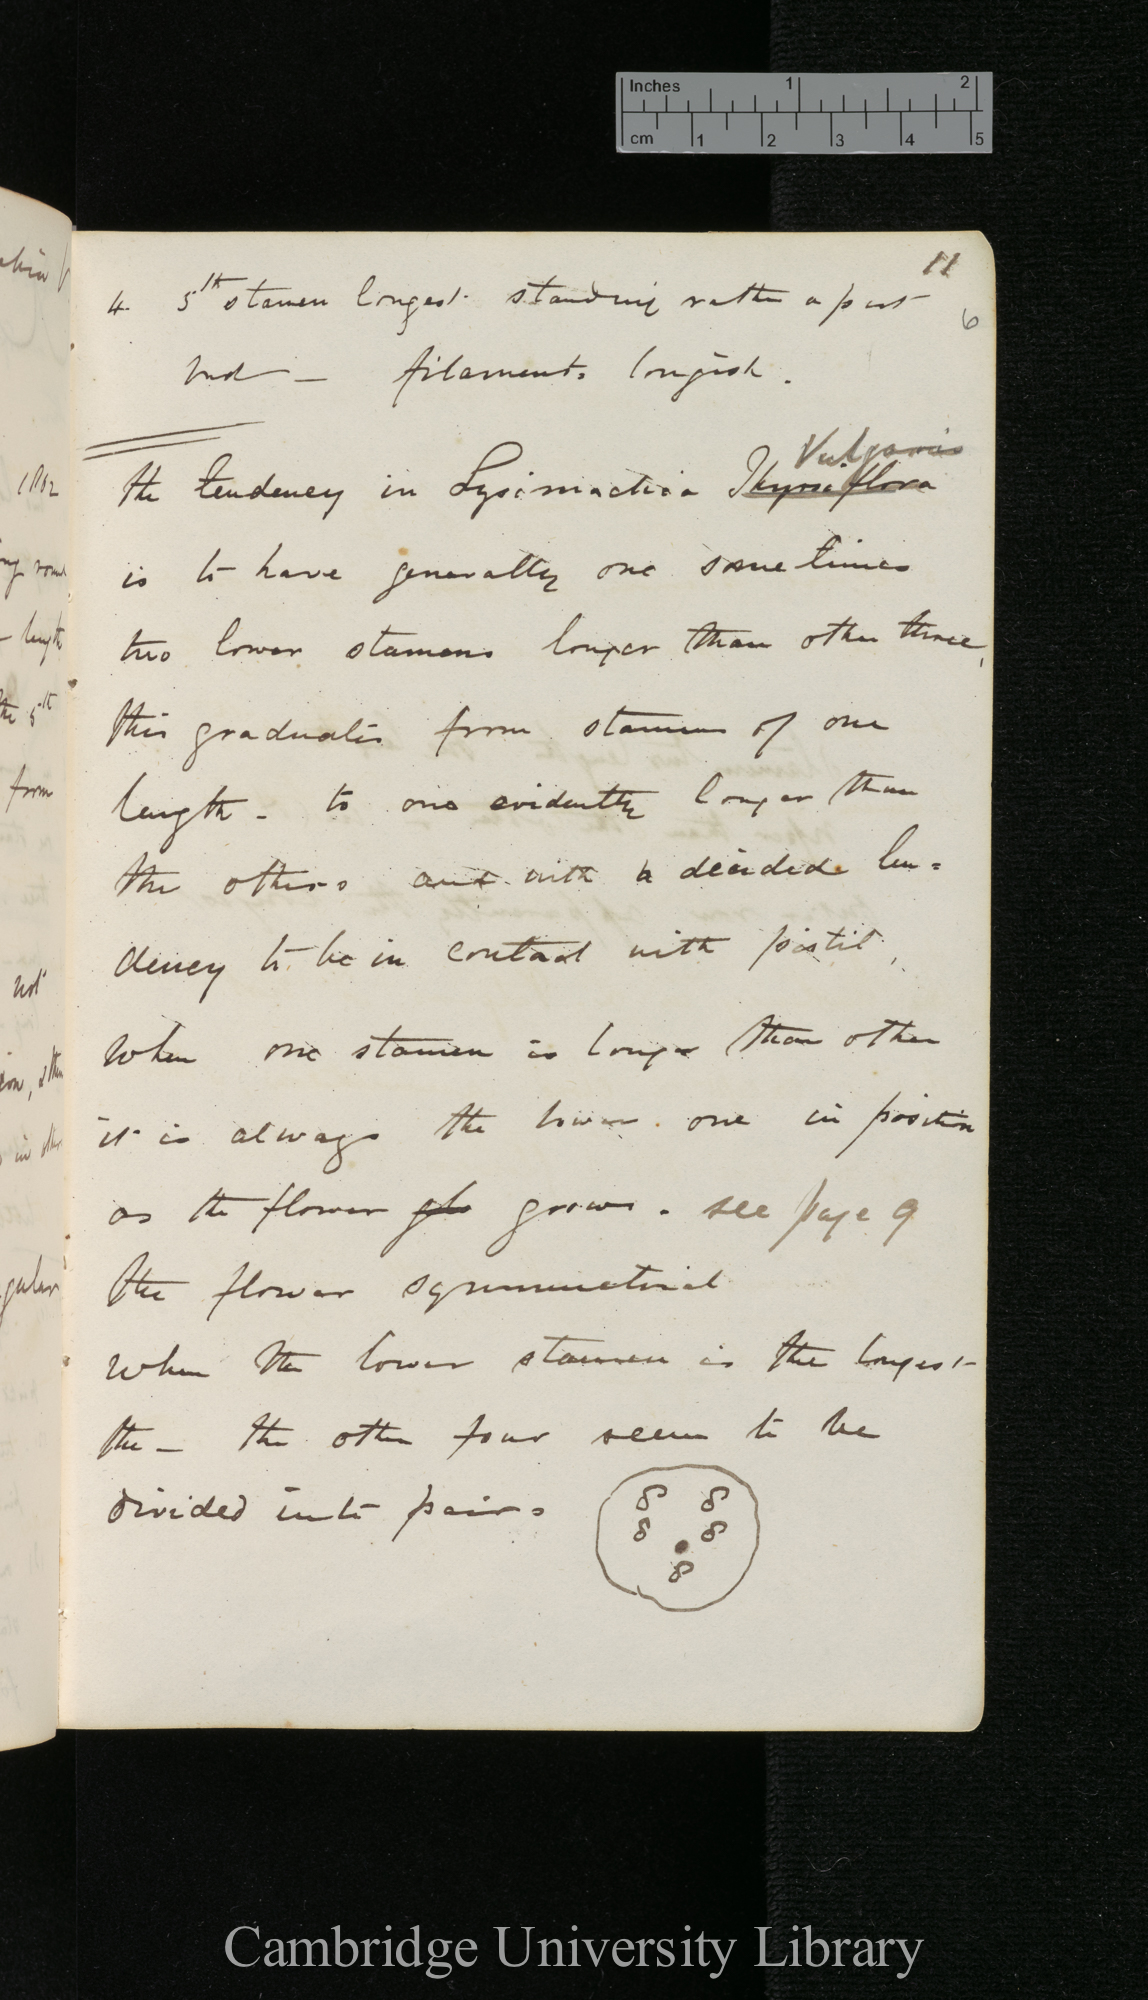 Inches 1 2
cm 1 2 3 4 5
11
6
4 5th stamen longest standing rather apart
bud — filaments longish.
Vulgaris
The tendency in Lysimachia Thyrsiflora
is to have generally one sometimes
two lower stamens longer than other three,
this graduates from stamens of one
length - to one evidently longer than
the others and with a decided ten=
dency to be in contact with pistil,
When one stamen is longer than other
it is always the lower one in position
as the flower glo grows. see page 9
The flower symmetrical
When the lower stamen is the longest
the — the other four seem to be
divided into pairs
1862
long round
- length
the 5th
from
not
in other
gular
Cambridge University Library